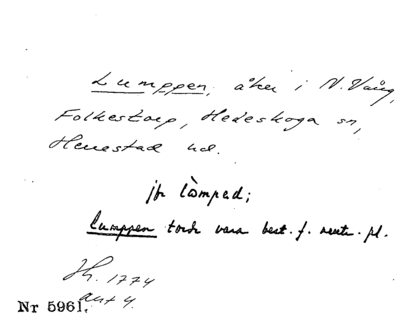 Lumppen, åker i N. Vång,
Folkestorp, Hedeskoga sn,
Herrestad hd.
jfr lòmped;
lumppen torde vara best. f. neutr. pl.
Jh. 1774
akt 4.
Nr 5961.